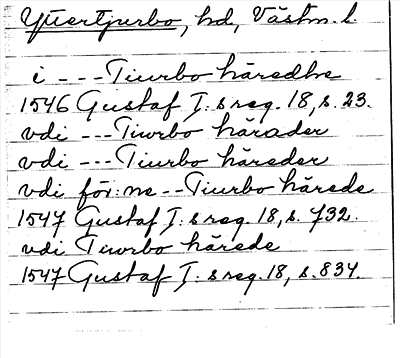 Yttertjurbo, hd, Västm. l.
i --- Tiurbo häredhe
1546 Gustaf I:s reg. 18, s. 23.
vdi --- Tiwrbo härader
vdi --- Tiurbo häreder
vdi för:ne -- Tiurbo härede
1547 Gustaf I:s reg. 18, s. 732.
vdi Tiwrbo härede
1547 Gustaf I:s reg. 18, s. 834.